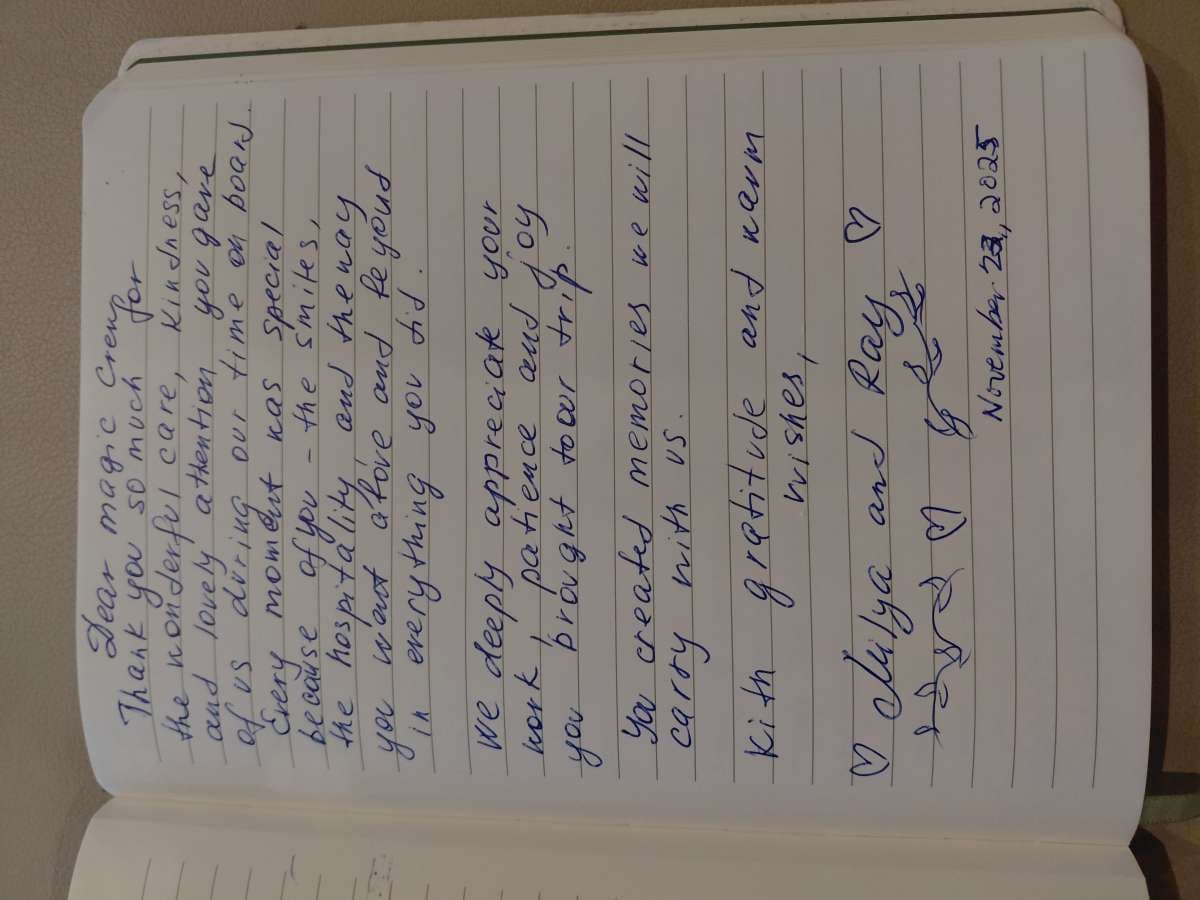 Dear magic Crew,
Thank you so much for
the wonderful care, kindness,
and lovely attention you gave
of us during our time on board.
Every moment was special
because of you - the smiles,
the hospitality and the way
you went above and beyond
in everything you did.
We deeply appreciate your
work, patience and joy
you brought to our trip.
You created memories we will
carry with us.
With gratitude and warm
wishes,
♡ Milya and Ray ♡
♡
November 23, 2025